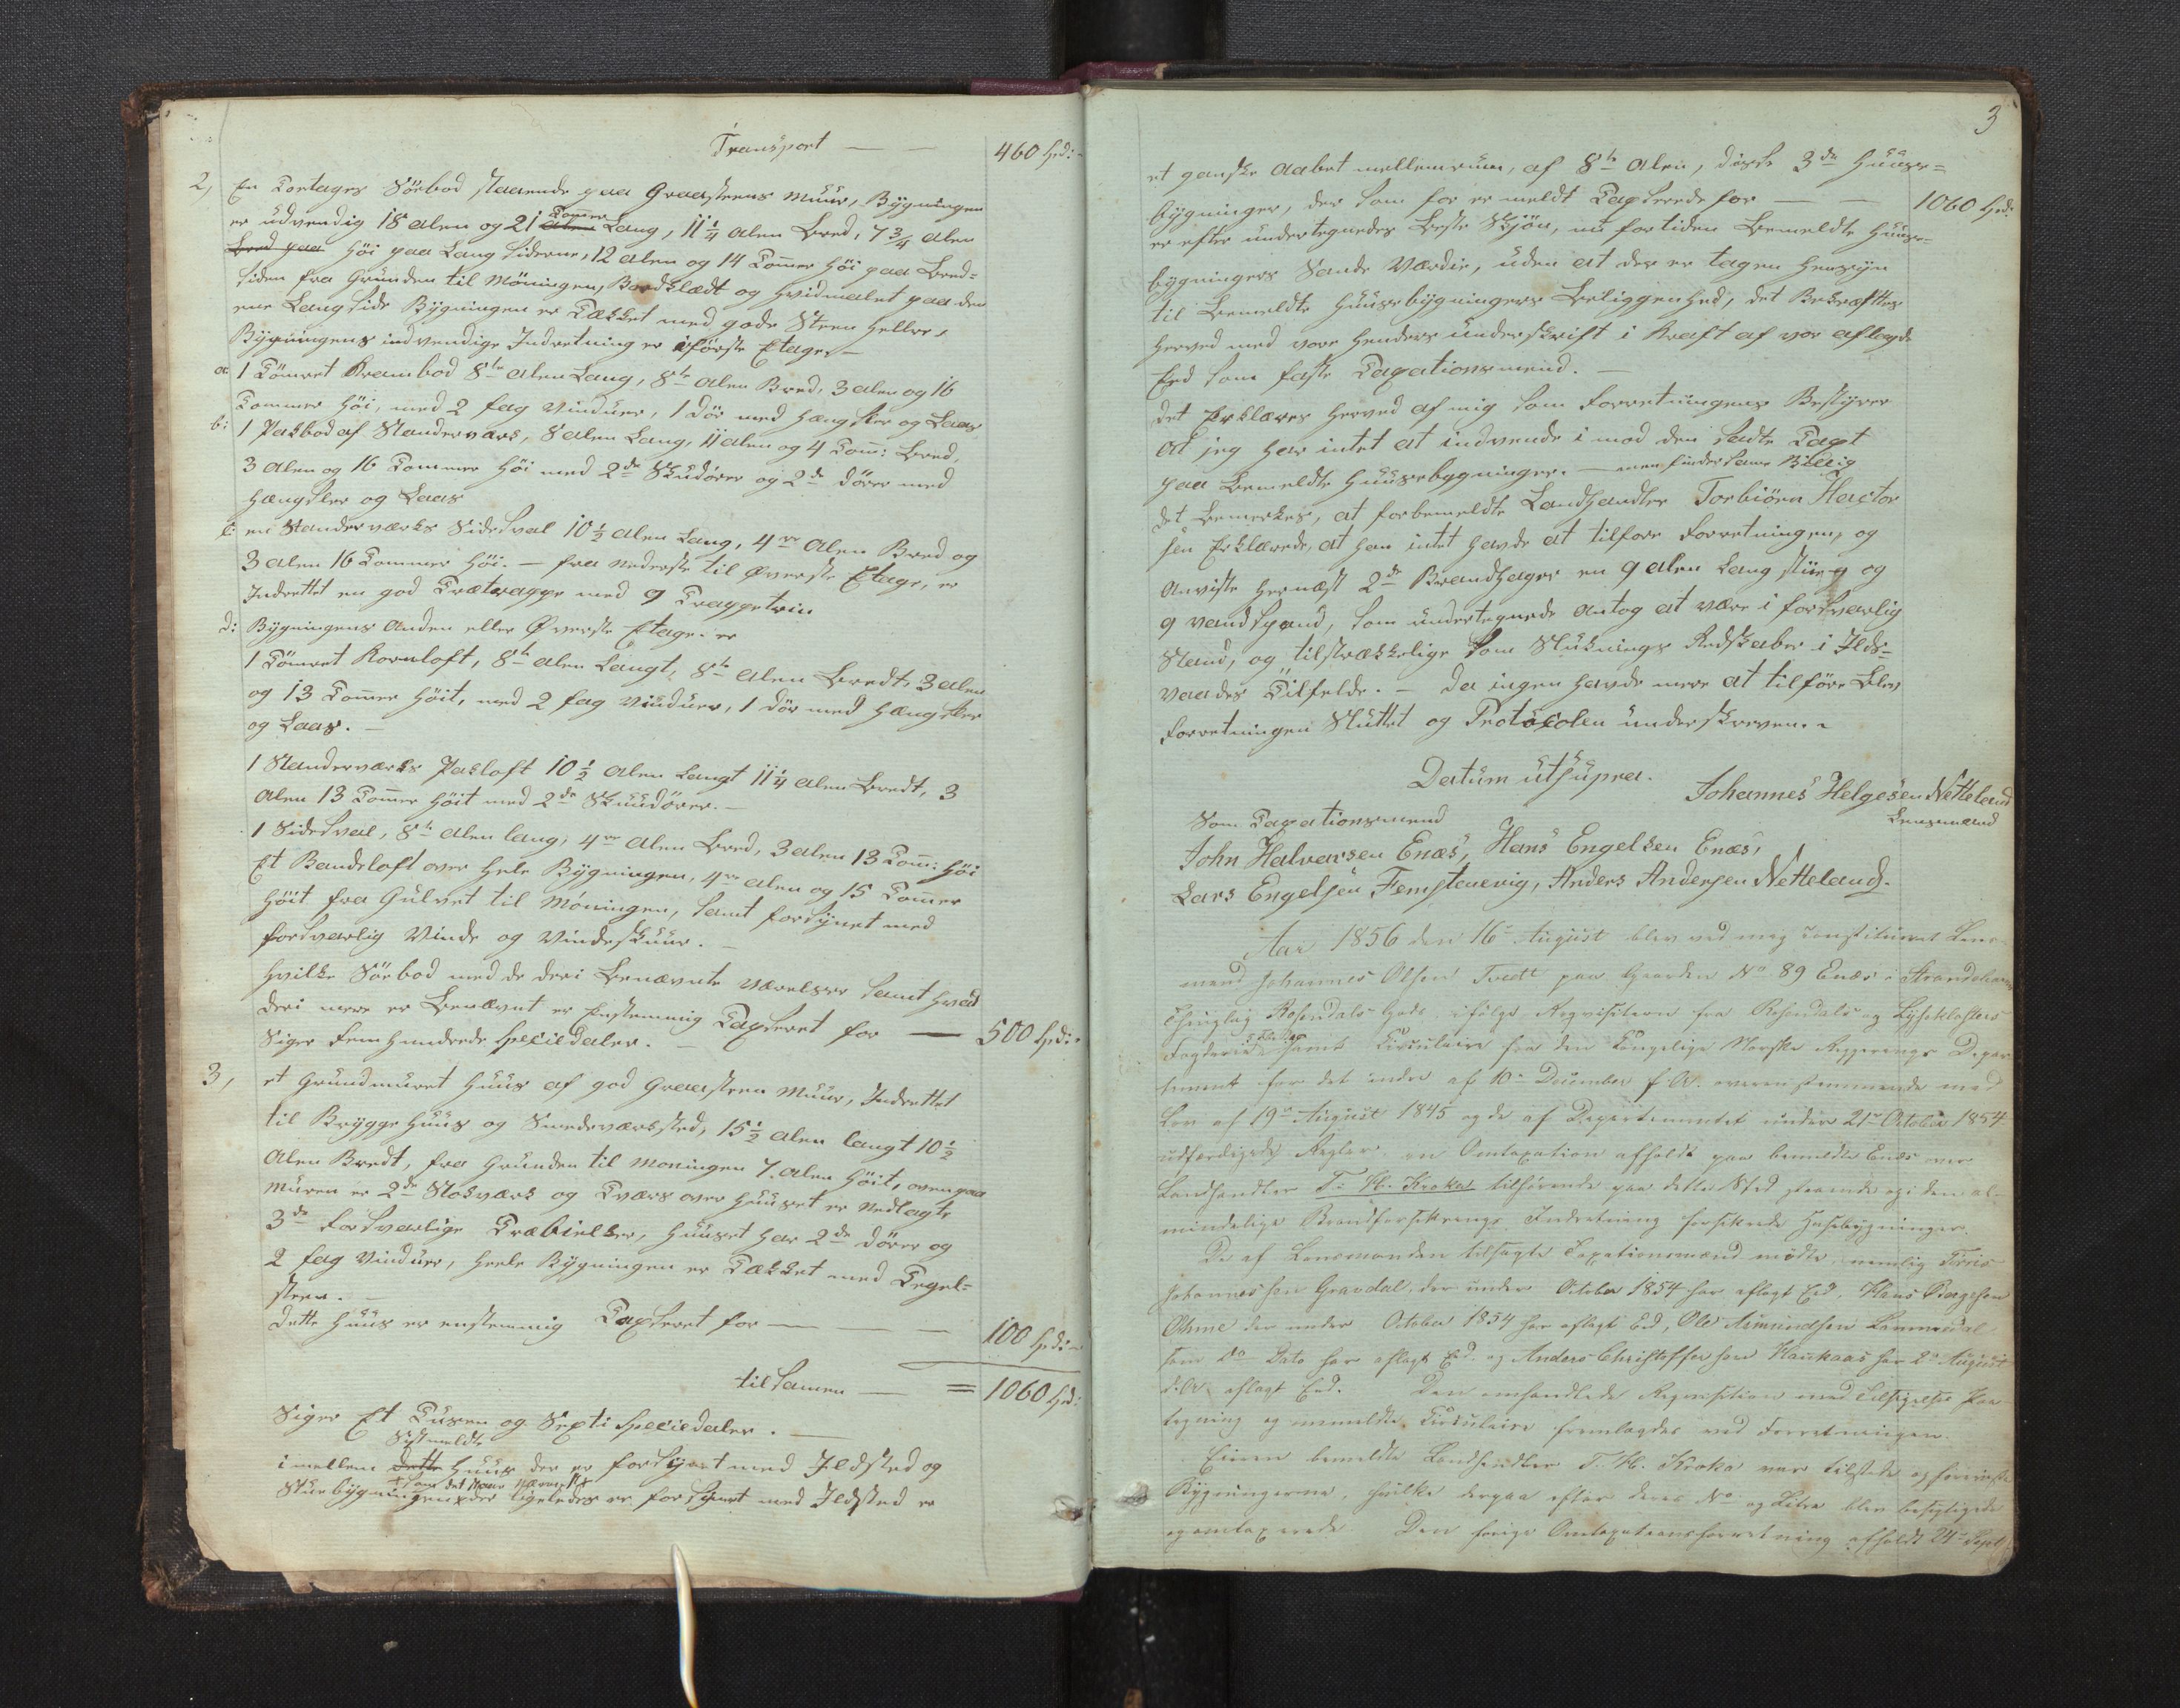 Transport — — 460 Spd:
2, En Toetages Söebod staaende paa Graasteens Muur, Bygningen
er udvendig 18 alen og 21 Tommer Lang, 11 1/4 Alen Bred, 7 3/4 Alen
Bred paa Höi paa Lang Siderne, 12 Alen og 14 Tommer Höi paa Bred=
siden fra Grunden til Möningen, Bordklædt og Hvidmalet paa den
ene Langside Bygningen er Tækket med gode Steen Heller,
Bygningens indvendige Indretning er i förste Etage, —
a: 1 Tömret Krambod 8te alen Lang, 8te Alen Bred, 3 alen og 16
Tommer Höi, med 2 fag Vinduer, 1 Dör med Hængsler og Laas
b: 1 Pakbod af Standerværk, 8 alen Lang, 11 alen og 4 Tom: Bred,
3 Alen og 16 Tommer Höi med 2de Skudörer og 2de dörer med
Hængsler og Laas
c: en Standerværks Sidesval 10 1/2 alen Lang, 4re Alen Bred og
3 alen 16 Tommer Höi. — fra nederste til Øverste Etage, er
Indrettet en god Trætrappe med 9 Trappetrin
d: Bygningens Anden eller Øverste Etage er
1 Tömret Kornloft, 8te alen Langt, 8te Alen Bredt, 3 alen
og 13 Tommer Höit, med 2 fag Vinduer, 1 dör med Hængsler
og Laas. —
1 Standerværks Pakloft 10 1/2 Alen Langt 11 1/4 Alen Bredt, 3
Alen 13 Tommer Höit med 2de Skuudörer. —
1 Sidesval, 8te Alen lang, 4re Alen Bred, 3 alen 13 Tom: Höi
Et Bandeloft over Hele Bygningen, 4re Alen og 15 Tommer
Höit fra Gulvet til Möningen, samt forsynet med
forsvarlig Vinde og Vindeskuur. —
Hvilke Söebod med de deri Benævnte Værelser samt hvad
deri mere er Benævnt er Enstemmig Taxseret for — 500 Spd:
Siger Fem Hundrede Speciedaler. —
3, et Grundmuret Huus af god Graasteen Muur, Indrettet
til Bryggehuus og Smedeværksted, 15 1/2 Alen langt 10 1/2
Alen Bredt, fra Grunden til Moningen 7. Alen Höit, oven paa
Muren er 2de Stokværk og Tværs over Huuset er Nedlagte
3de forsvarlige Træbielker, Huuset har 2de dörer og
2 fag Vinduer, Heele Bygningen er Tækket med Tegel=
steen. —
Dette Huus er enstemmig Taxseret for — — — 100 Spd:
tilsamen — = 1060 Spd:
Siger Et Tusen og Sexti Speciedaler. —
Sistmeldte
imellem dette Huus der er forsynet med Ildsted og
som det staar Nærmest
Stuebygningen der ligeledes er forsynet med Ildsted er
3
et ganske aabet mellemrum, af 8te Alen, disse 3de Huuse=
bygninger, der som for er meldt Taxserede for — — 1060 Spd:
er efter undertegnedes Beste Skjön, nu fortiden Bemeldte Huuse=
bygningers Sande Værdie, uden at der er tagen Hensyn
til Bemeldte Huusebygningers Beliggenhed, det Bekræftes
Herved med vore Henders underskrift i Kraft af vor aflagde
Eed som faste Taxationsmend. —
Det Erklæres Herved af mig som forretningens Bestyrer
At jeg har intet at indvende i mod den Sadte Taxt
paa Bemeldte Huusebygninger. — men finder Same Billig
Det Bemerkes, at forbemeldte Landhandler Torbiörn Hactor
sen Erklærede, at han intet havde at tilföre forretningen, og
Anviste Hernæst 2de Brandhager en 9 alen Lang Stiie og
9 Vandspand, som undertegnede Antog at være i forsvarlig
Stand, og tilstrækkelige som Sluknings Redskaber i Ilds=
vaades Tilfelde. — Da ingen havde mere at tilföre Blev
forretningen Sluttet og Protocolen underskreven. ~
Datum utsupra.
Johannes Helgesen Netteland
Lensmand
Som Taxationsmend
John Halvarsen Enæs, Hans Engelsen Enæs,
Lars Engelsen Femstenevig, Anders Andersen Netteland.
Aar 1856 den 16de August blev ved mig constitueret Lens
mand Johannes Olsen Tvedt paa Gaarden No 89 Enæs i Strandebarm
Thinglag Rosendals Gods ifölge Reqvisition fra Rosendals og Lyseklosters
Fogderie samt Circulaire fra den Kongelige Norske Regjerings Depar
tement for det indre af 10de December f. A. overensstemmende med
Lov af 19de August 1845 og de af Departementet under 21de October 1854
udfærdigede Regler en Omtaxation afholdt paa bemeldte Enæs over
Landhandler T. H. Kroka tilhörende paa dette Sted staaende og i den al
mindelige Brandforsikrings Indretning forsikrede Husebygninger.
De af Lensmanden tilsagte Taxationsmænd mödte, nemlig Tönis
Johannessen Gravdal, der under October 1854 har aflagt Ed, Hans Bergesen
Othme der under October 1854 har aflagt Ed, Ole Asmundsen
som Do Dato har aflagt Ed. og Anders Christoffersen Haukaas har 2de August
d. A. aflagt Ed. Den omhandlede Reqvisition med Tilsigelses Paa
tegning og anmeldte Circulaire fremlagdes ved Forretningen.
Eieren bemeldte Landhandler T. H. Kroka var tilstede og foreviste
Bygningerne, hvilke derpaa efter deres No og Litra blev besigtigede
og omtaxerede Den forrige Omtaxationsforretning afholdt 24de Sept